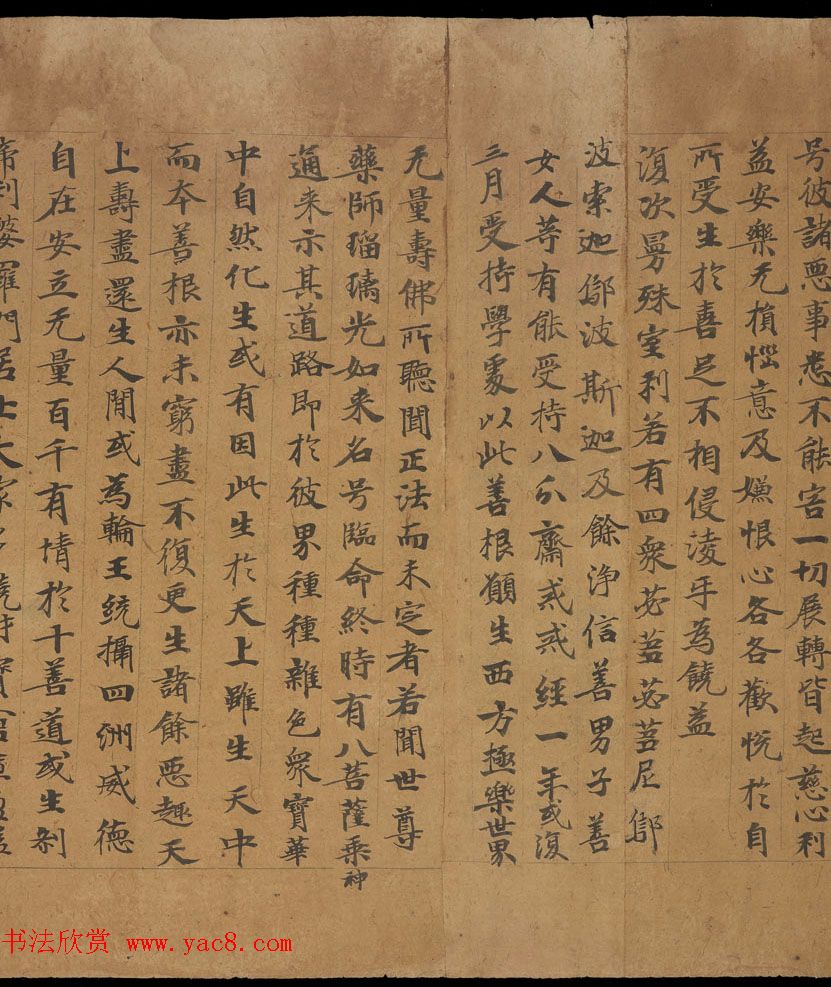 号彼諸惡事悉不能害一切展轉皆起慈心利
益安樂无損惱意及嫌恨心各各歡悅於自
所受生於喜足不相侵淩乎為饒益
復次曼殊室利若有四衆苾芻苾芻尼鄔
波索迦鄔波斯迦及餘浄信善男子善
女人等有能受持八分齋戒或經一年或復
三月受持學處以此善根願生西方極樂世界
无量壽佛所聽聞正法而未定者若聞世尊
藥師瑠璃光如来名号臨命終時有八菩薩乘神
通来示其道路即於彼界種種雜色衆寶華
中自然化生或有因此生於天上雖生天中
而夲善根亦未窮盡不復更生諸餘惡趣天
上壽盡還生人間或為輪王統攝四洲威德
自在安立无量百千有情於十善道或生刹
帝利婆羅門居士大家多饒財寳倉庫盈溢
书法欣赏 www.yac8.com